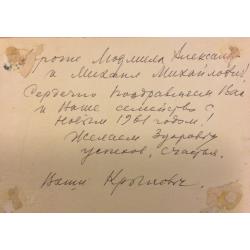 Людмила Александр
и Михаил Михайлович!
Сердечно поздравляем Вас
и Ваше семейство с
Новым 1961 годом!
Желаем здоровья
успехов, счастья.
Ваши